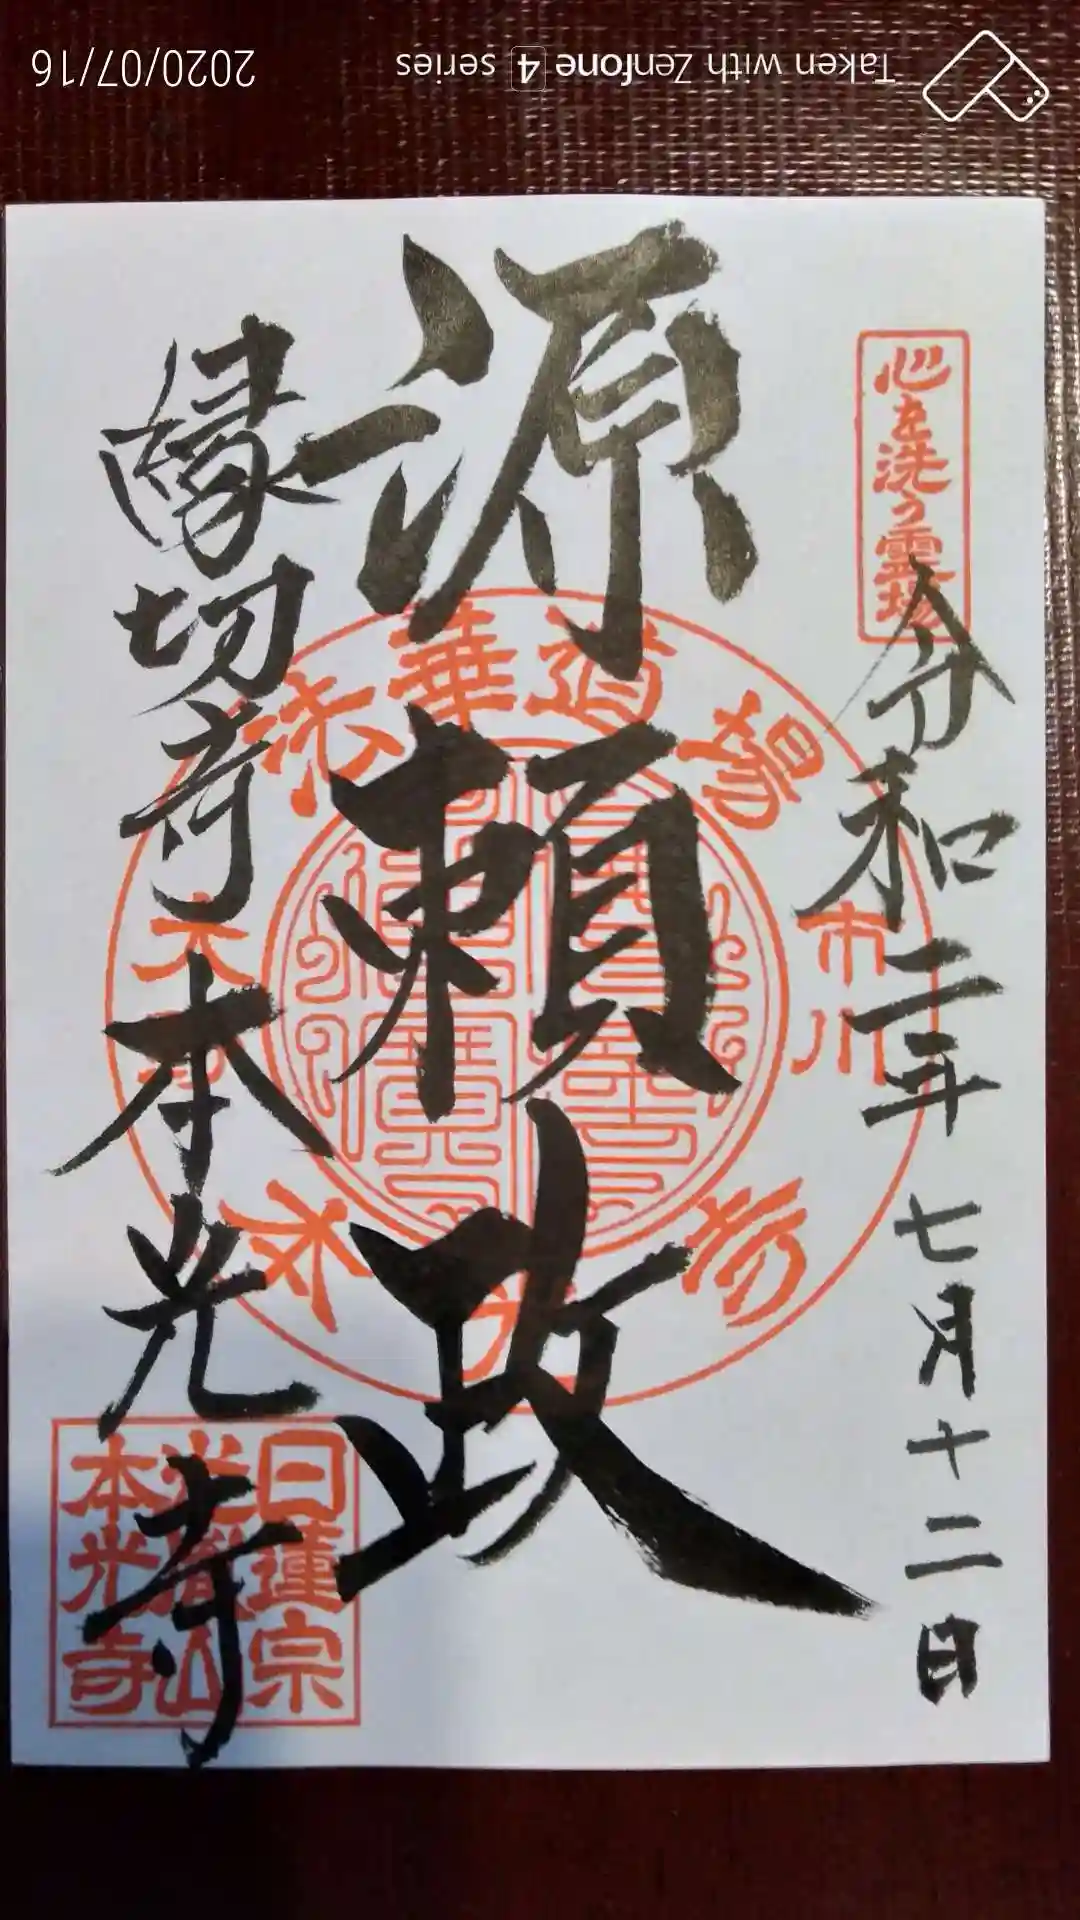 2020/07/16
Taken with Zenfone 4 series
心を洗う霊場
令和二年 七月十二日
源頼政
縁切寺 本光寺
法華道場
市川
大野
本光寺
日蓮宗
光胤山
本光寺